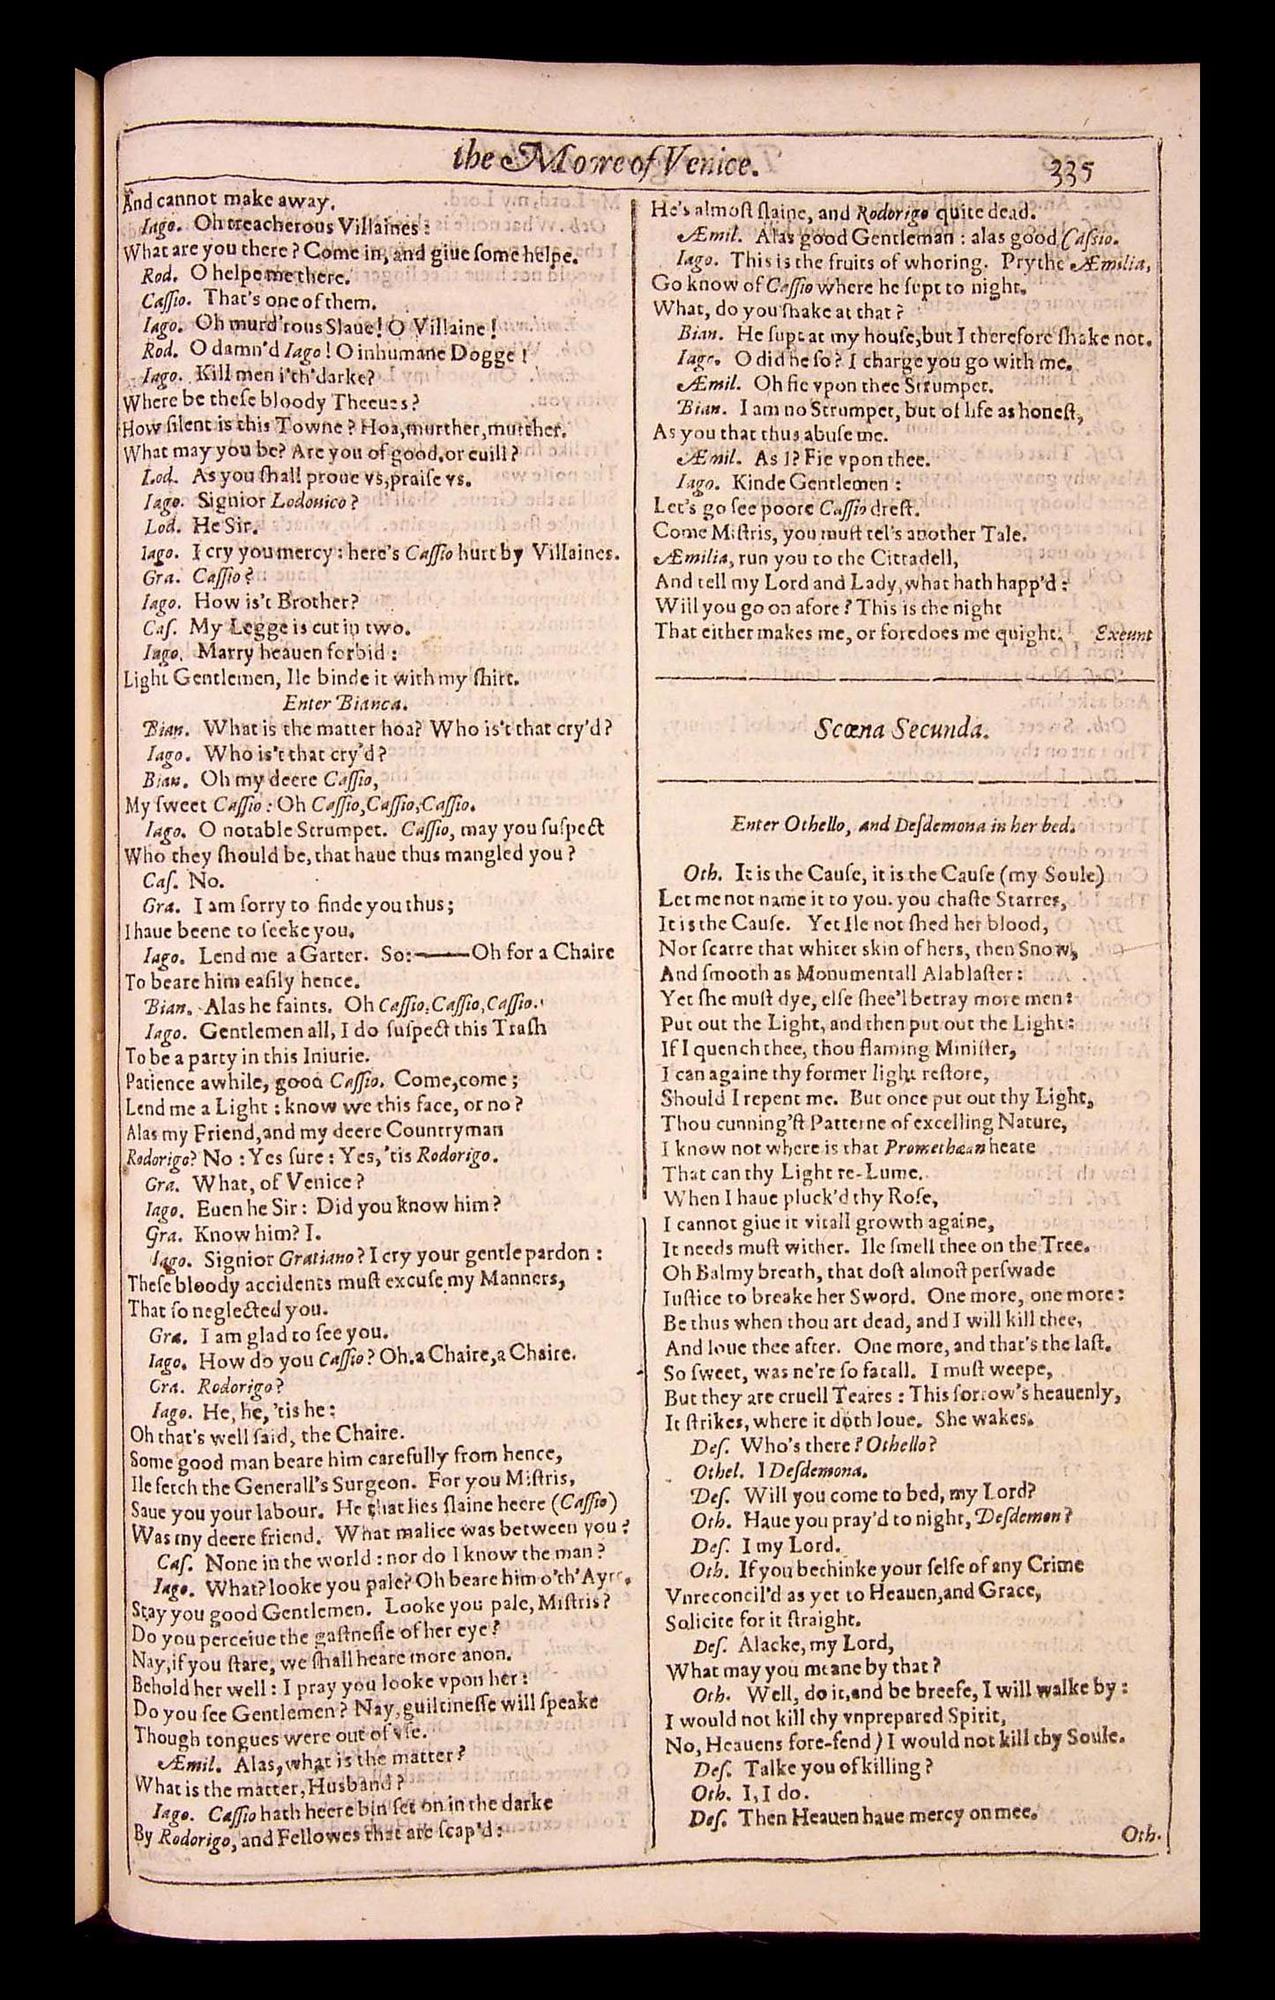 the Moore of Venice. 335
And cannot make away.
Iago. Oh treacherous Villaines:
What are you there? Come in, and giue some helpe.
Rod. O helpe me there.
Cassio. That's one of them.
Iago. Oh murd'rous Slaue! O Villaine!
Rod. O damn'd Iago! O inhumane Dogge!
Iago. Kill men i'th'darke?
Where be these bloody Theeues?
How silent is this Towne? Hoa, murther, murther.
What may you be? Are you of good, or euill?
Lod. As you shall proue vs, praise vs.
Iago. Signior Lodouico?
Lod. He Sir.
Iago. I cry you mercy: here's Cassio hurt by Villaines.
Gra. Cassio?
Iago. How is't Brother?
Cas. My Legge is cut in two.
Iago. Marry heauen forbid:
Light Gentlemen, Ile binde it with my shirt.
Enter Bianca.
Bian. What is the matter hoa? Who is't that cry'd?
Iago. Who is't that cry'd?
Bian. Oh my deere Cassio,
My sweet Cassio: Oh Cassio, Cassio, Cassio.
Iago. O notable Strumpet. Cassio, may you suspect
Who they should be, that haue thus mangled you?
Cas. No.
Gra. I am sorry to finde you thus;
I haue beene to seeke you.
Iago. Lend me a Garter. So:——Oh for a Chaire
To beare him easily hence.
Bian. Alas he faints. Oh Cassio, Cassio, Cassio.
Iago. Gentlemen all, I do suspect this Trash
To be a party in this Iniurie.
Patience awhile, good Cassio. Come, come;
Lend me a Light: know we this face, or no?
Alas my Friend, and my deere Countryman
Rodorigo? No: Yes sure: Yes, 'tis Rodorigo.
Gra. What, of Venice?
Iago. Euen he Sir: Did you know him?
Gra. Know him? I.
Iago. Signior Gratiano? I cry your gentle pardon:
These bloody accidents must excuse my Manners,
That so neglected you.
Gra. I am glad to see you.
Iago. How do you Cassio? Oh, a Chaire, a Chaire.
Gra. Rodorigo?
Iago. He, he, 'tis he:
Oh that's well said, the Chaire.
Some good man beare him carefully from hence,
Ile fetch the Generall's Surgeon. For you Mistris,
Saue you your labour. He that lies slaine heere (Cassio)
Was my deere friend. What malice was between you?
Cas. None in the world: nor do I know the man?
Iago. What? looke you pale? Oh beare him o'th'Ayre.
Stay you good Gentlemen. Looke you pale, Mistris?
Do you perceiue the gastnesse of her eye?
Nay, if you stare, we shall heare more anon.
Behold her well: I pray you looke vpon her:
Do you see Gentlemen? Nay, guiltinesse will speake
Though tongues were out of vse.
Æmil. Alas, what is the matter?
What is the matter, Husband?
Iago. Cassio hath heere bin set on in the darke
By Rodorigo, and Fellowes that are scap'd:
He's almost slaine, and Rodorigo quite dead.
Æmil. Alas good Gentleman: alas good Cassio.
Iago. This is the fruits of whoring. Prythe Æmilia,
Go know of Cassio where he supt to night.
What, do you shake at that?
Bian. He supt at my house, but I therefore shake not.
Iago. O did he so? I charge you go with me.
Æmil. Oh fie vpon thee Strumpet.
Bian. I am no Strumpet, but of life as honest,
As you that thus abuse me.
Æmil. As I? Fie vpon thee.
Iago. Kinde Gentlemen:
Let's go see poore Cassio drest.
Come Mistris, you must tel's another Tale.
Æmilia, run you to the Cittadell,
And tell my Lord and Lady, what hath happ'd:
Will you go on afore? This is the night
That either makes me, or foredoes me quight. Exeunt
Scœna Secunda.
Enter Othello, and Desdemona in her bed.
Oth. It is the Cause, it is the Cause (my Soule)
Let me not name it to you, you chaste Starres,
It is the Cause. Yet Ile not shed her blood,
Nor scarre that whiter skin of hers, then Snow,
And smooth as Monumentall Alablaster:
Yet she must dye, else shee'l betray more men:
Put out the Light, and then put out the Light:
If I quench thee, thou flaming Minister,
I can againe thy former light restore,
Should I repent me. But once put out thy Light,
Thou cunning'st Patterne of excelling Nature,
I know not where is that Promethæan heate
That can thy Light re-Lume.
When I haue pluck'd thy Rose,
I cannot giue it vitall growth againe,
It needs must wither. Ile smell thee on the Tree.
Oh Balmy breath, that dost almost perswade
Iustice to breake her Sword. One more, one more:
Be thus when thou art dead, and I will kill thee,
And loue thee after. One more, and that's the last.
So sweet, was ne're so fatall. I must weepe,
But they are cruell Teares: This sorrow's heauenly,
It strikes, where it doth loue. She wakes.
Des. Who's there? Othello?
Othel. I Desdemona.
Des. Will you come to bed, my Lord?
Oth. Haue you pray'd to night, Desdemon?
Des. I my Lord.
Oth. If you bethinke your selfe of any Crime
Vnreconcil'd as yet to Heauen, and Grace,
Solicite for it straight.
Des. Alacke, my Lord,
What may you meane by that?
Oth. Well, do it, and be breefe, I will walke by:
I would not kill thy vnprepared Spirit,
No, Heauens fore-fend) I would not kill thy Soule.
Des. Talke you of killing?
Oth. I, I do.
Des. Then Heauen haue mercy on mee.
Oth.